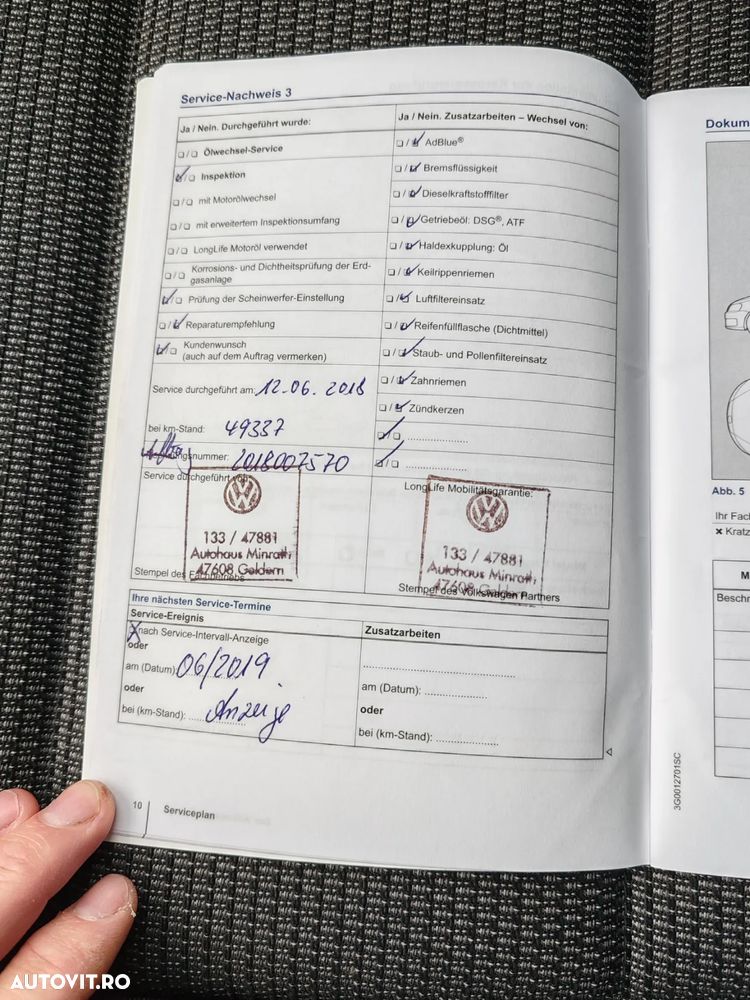 Service-Nachweis 3
Ja / Nein. Durchgeführt wurde:
❑/❑ Ölwechsel-Service
❑/❑ Inspektion
❑/❑ mit Motorölwechsel
❑/❑ mit erweitertem Inspektionsumfang
❑/❑ LongLife Motoröl verwendet
❑/❑ Korrosions- und Dichtheitsprüfung der Erd-
gasanlage
❑/❑ Prüfung der Scheinwerfer-Einstellung
❑/❑ Reparaturempfehlung
❑/❑ Kundenwunsch
(auch auf dem Auftrag vermerken)
Service durchgeführt am: 12.06.2018
bei km-Stand: 49337
nummer: 2018007570
Service durchgeführt von:
VW
133 / 47881
Autohaus Minrath
47608 Geldern
Stempel des Fachbetriebs
Ja / Nein. Zusatzarbeiten – Wechsel von:
❑/❑ AdBlue®
❑/❑ Bremsflüssigkeit
❑/❑ Dieselkraftstofffilter
❑/❑ Getriebeöl: DSG®, ATF
❑/❑ Haldexkupplung: Öl
❑/❑ Keilrippenriemen
❑/❑ Luftfiltereinsatz
❑/❑ Reifenfüllflasche (Dichtmittel)
❑/❑ Staub- und Pollenfiltereinsatz
❑/❑ Zahnriemen
❑/❑ Zündkerzen
❑/❑ ....................
❑/❑ ....................
LongLife Mobilitätsgarantie:
VW
133 / 47881
Autohaus Minrath
47608 Geldern
Stempel des Volkswagen Partners
Ihre nächsten Service-Termine
Service-Ereignis
nach Service-Intervall-Anzeige
oder
am (Datum): 06/2019
oder
bei (km-Stand): Anzeige
Zusatzarbeiten
..................................................
am (Datum): ....................
oder
bei (km-Stand): ....................
10
Serviceplan
Dokum
Abb. 5
Ihr Fac
× Kratz
M
Beschr
3G0012701SC
AUTOVIT.RO